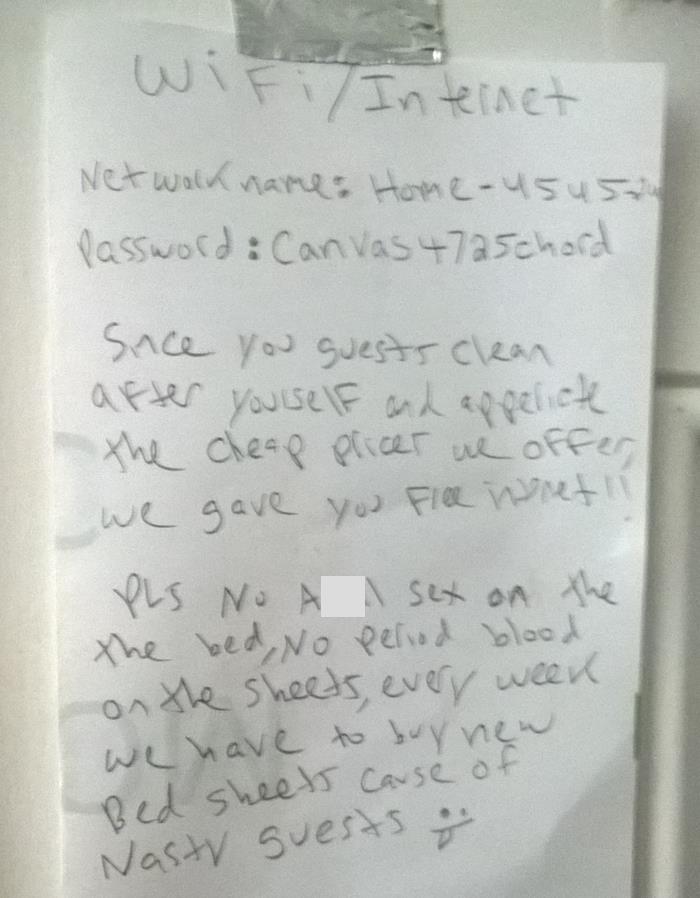 WiFi/Internet
Network name: Home-4545
Password: Canvas4725chord
Since you guests clean
after yourself and apperictc
the cheap prices we offer,
we gave you Free intret!!
PLS No A l sex on the
the bed, No period blood
on the sheets, every week
we have to buy new
Bed sheets cause of
Nasty guests